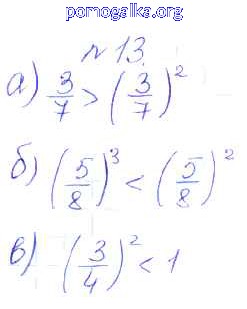 pomogalka.org
№ 13.
а) 3/7 > (3/7)²
б) (5/8)³ < (5/8)²
в) (3/4)² < 1